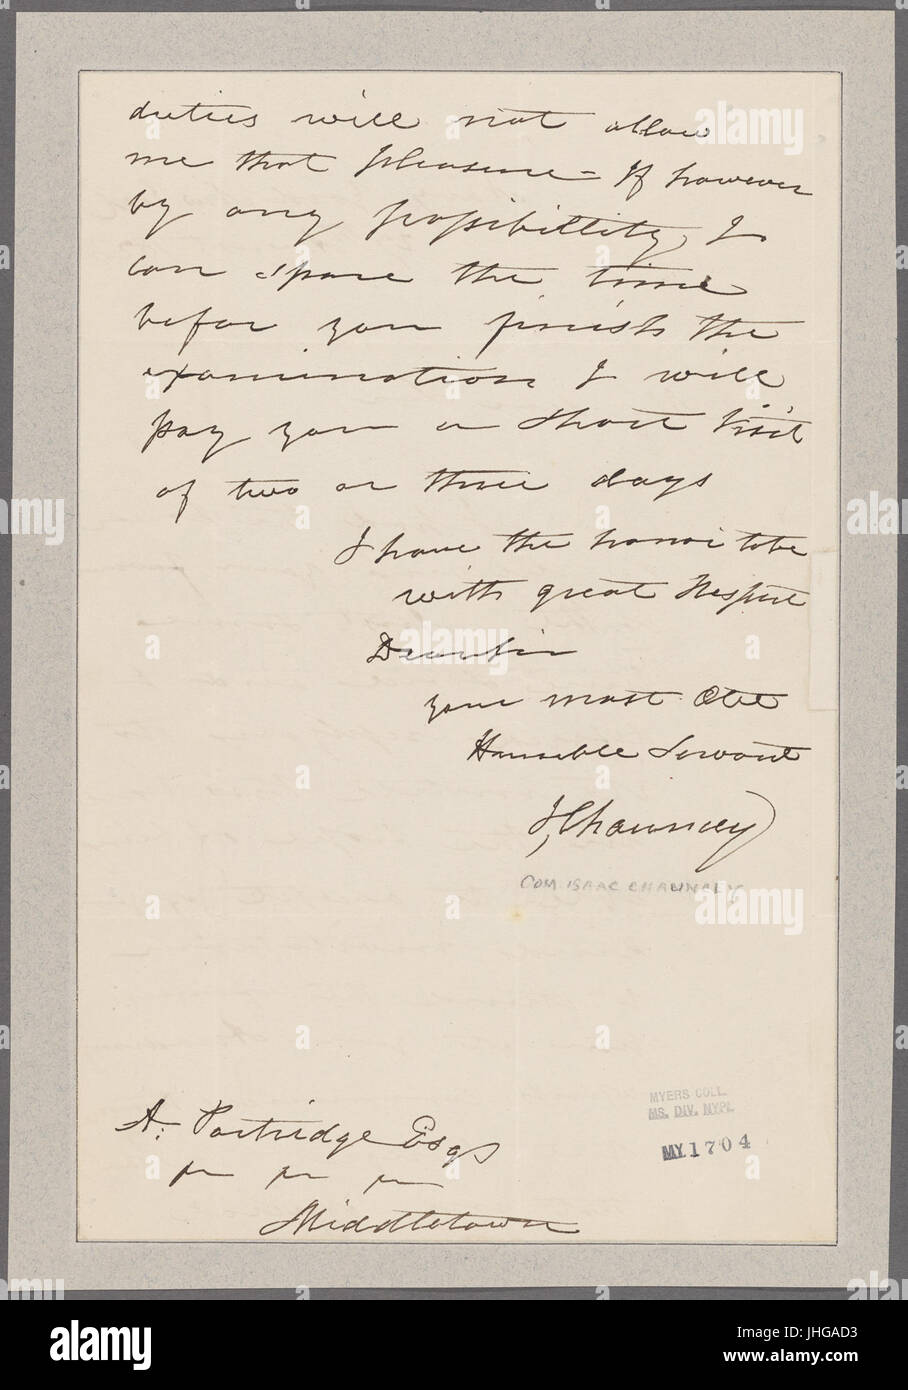 duties will not allow
me that pleasure - If however
by any possibillity I
can spare the time
before you finish the
examination I will
pay you a short visit
of two or three days
I have the honor to be
with great Respect
Dear Sir
your most Obt
Humble Servant
I, Chauncey
COM. ISAAC CHAUNCEY
MYERS COLL.
MS. DIV. NYPL
MY 1704
A. Partridge Esqr
Middletown
alamy
JHGAD3
www.alamy.com